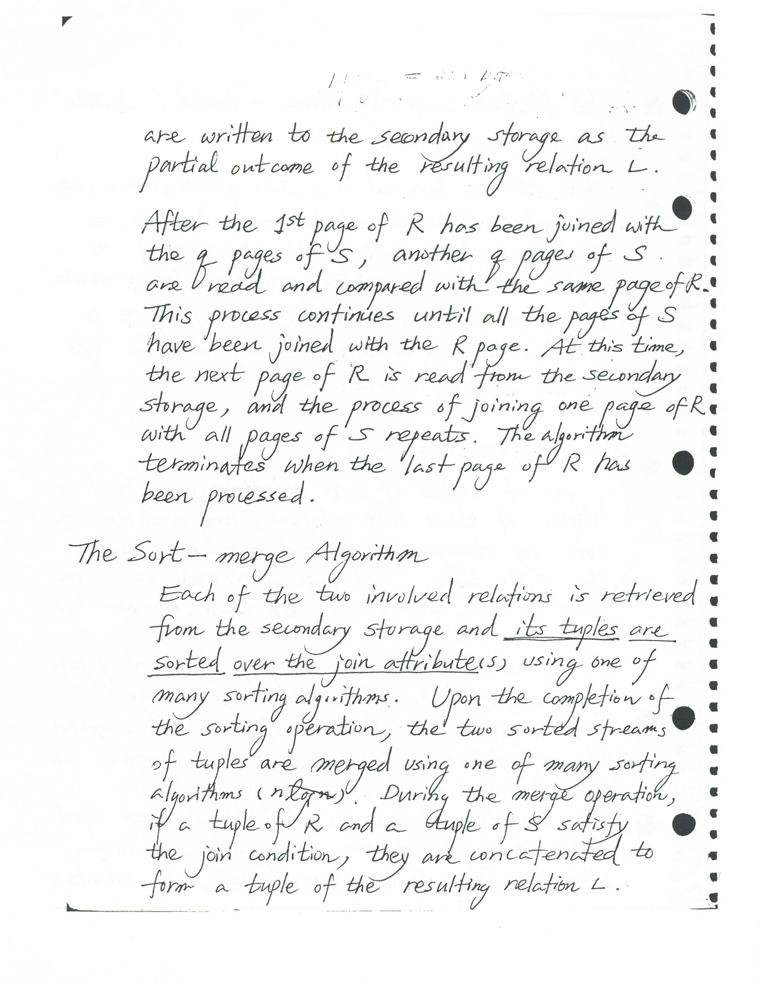 are written to the secondary storage as the
partial outcome of the resulting relation L.
After the 1st page of R has been joined with
the q pages of S, another q pages of S
are read and compared with the same page of R.
This process continues until all the pages of S
have been joined with the R page. At this time,
the next page of R is read from the secondary
storage, and the process of joining one page of R
with all pages of S repeats. The algorithm
terminates when the last page of R has
been processed.
The Sort-merge Algorithm
Each of the two involved relations is retrieved
from the secondary storage and its tuples are
sorted over the join attribute(s) using one of
many sorting algorithms. Upon the completion of
the sorting operation, the two sorted streams
of tuples are merged using one of many sorting
algorithms (nlogn). During the merge operation,
if a tuple of R and a tuple of S satisfy
the join condition, they are concatenated to
form a tuple of the resulting relation L.